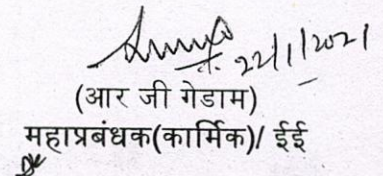 22/1/2021
(आर जी गेडाम)
महाप्रबंधक(कार्मिक)/ ईई